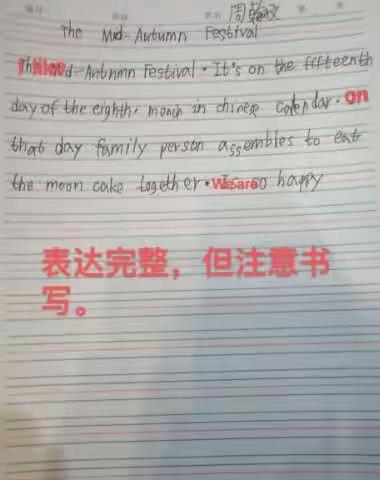 周翰
The Mid-Autumn Festival
Mid-Autnmn Festival. It's on the fifteenth
day of the eighth. monch in chinese calendar. on
that day family person assembles to eat
the moon cake together. We are so happy
表达完整，但注意书
写。